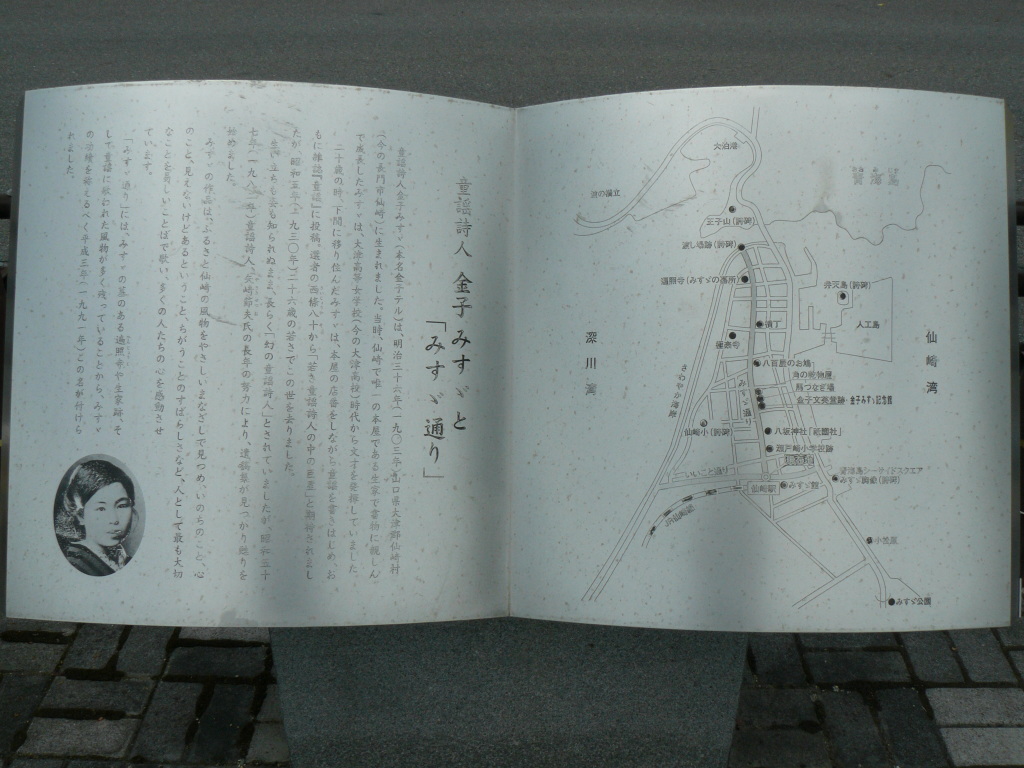 童謡詩人 金子みすゞと
「みすゞ通り」
童謡詩人金子みすゞ(本名金子テル)は、明治三十六年(一九〇三年)山口県大津郡仙崎村
(今の長門市仙崎)に生まれました。当時、仙崎で唯一の本屋である生家で書物に親しん
で成長したみすゞは、大津高等女学校(今の大津高校)時代から文才を発揮していました。
二十歳の時、下関に移り住んだみすゞは、本屋の店番をしながら童謡を書きはじめ、お
もに雑誌『童謡』に投稿。選者の西條八十から「若き童謡詩人の中の巨星」と期待されまし
たが、昭和五年(一九三〇年)二十六歳の若さでこの世を去りました。
生い立ちも姿も知られぬまま、長らく「幻の童謡詩人」とされていましたが、昭和五十
七年(一九八二年)童謡詩人、矢崎節夫氏の長年の努力により、遺稿集が見つかり甦りを
始めました。
みすゞの作品は、ふるさと仙崎の風物をやさしいまなざしで見つめ、いのちのこと、心
のこと、見えないけどあるということ、ちがうことのすばらしさなど、人として最も大切
なことを美しいことばで歌い、多くの人たちの心を感動させ
ています。
「みすゞ通り」には、みすゞの墓のある遍照寺や生家跡、そ
して童謡に歌われた風物が多く残っていることから、みすゞ
の功績を称えるべく平成三年(一九九一年)この名が付けら
れました。
大泊港
青海島
波の橋立
王子山(詩碑)
渡し場跡(詩碑)
遍照寺(みすゞの墓所)
弁天島(詩碑)
人工島
仙崎湾
深川湾
極楽寺
八百屋のお鳩
角の乾物屋
金子文英堂跡・金子みすゞ記念館
みすゞ通り
さわやか海岸
仙崎小(詩碑)
八坂神社「祇園社」
瀬戸崎小学校跡
いいこと通り
仙崎駅
みすゞ館
青海島シーサイドスクエア
JR仙崎線
小笠原
みすゞ公園